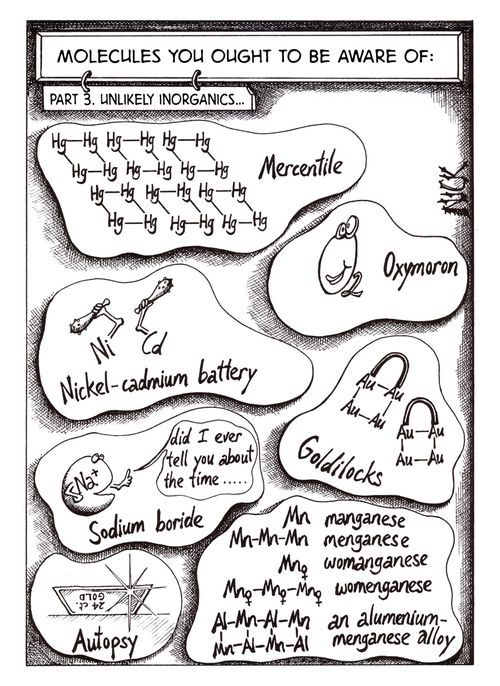 MOLECULES YOU OUGHT TO BE AWARE OF:
PART 3. UNLIKELY INORGANICS...
Hg—Hg Hg—Hg Hg—Hg
Hg—Hg Hg—Hg Hg—Hg
Hg—Hg Hg—Hg Hg—Hg
Hg—Hg Hg—Hg Hg—Hg
Mercentile
NICK
O2
Oxymoron
Ni Cd
Nickel-cadmium battery
Au Au
Au—Au
Au—Au
Au—Au
Goldilocks
Na+
did I ever
tell you about
the time.....
Sodium boride
24 ct.
GOLD
Autopsy
Mn manganese
Mn-Mn-Mn menganese
Mn♀ womanganese
Mn♀-Mn♀-Mn♀ womenganese
Al-Mn-Al-Mn an alumenium-
Mn-Al-Mn-Al menganese alloy